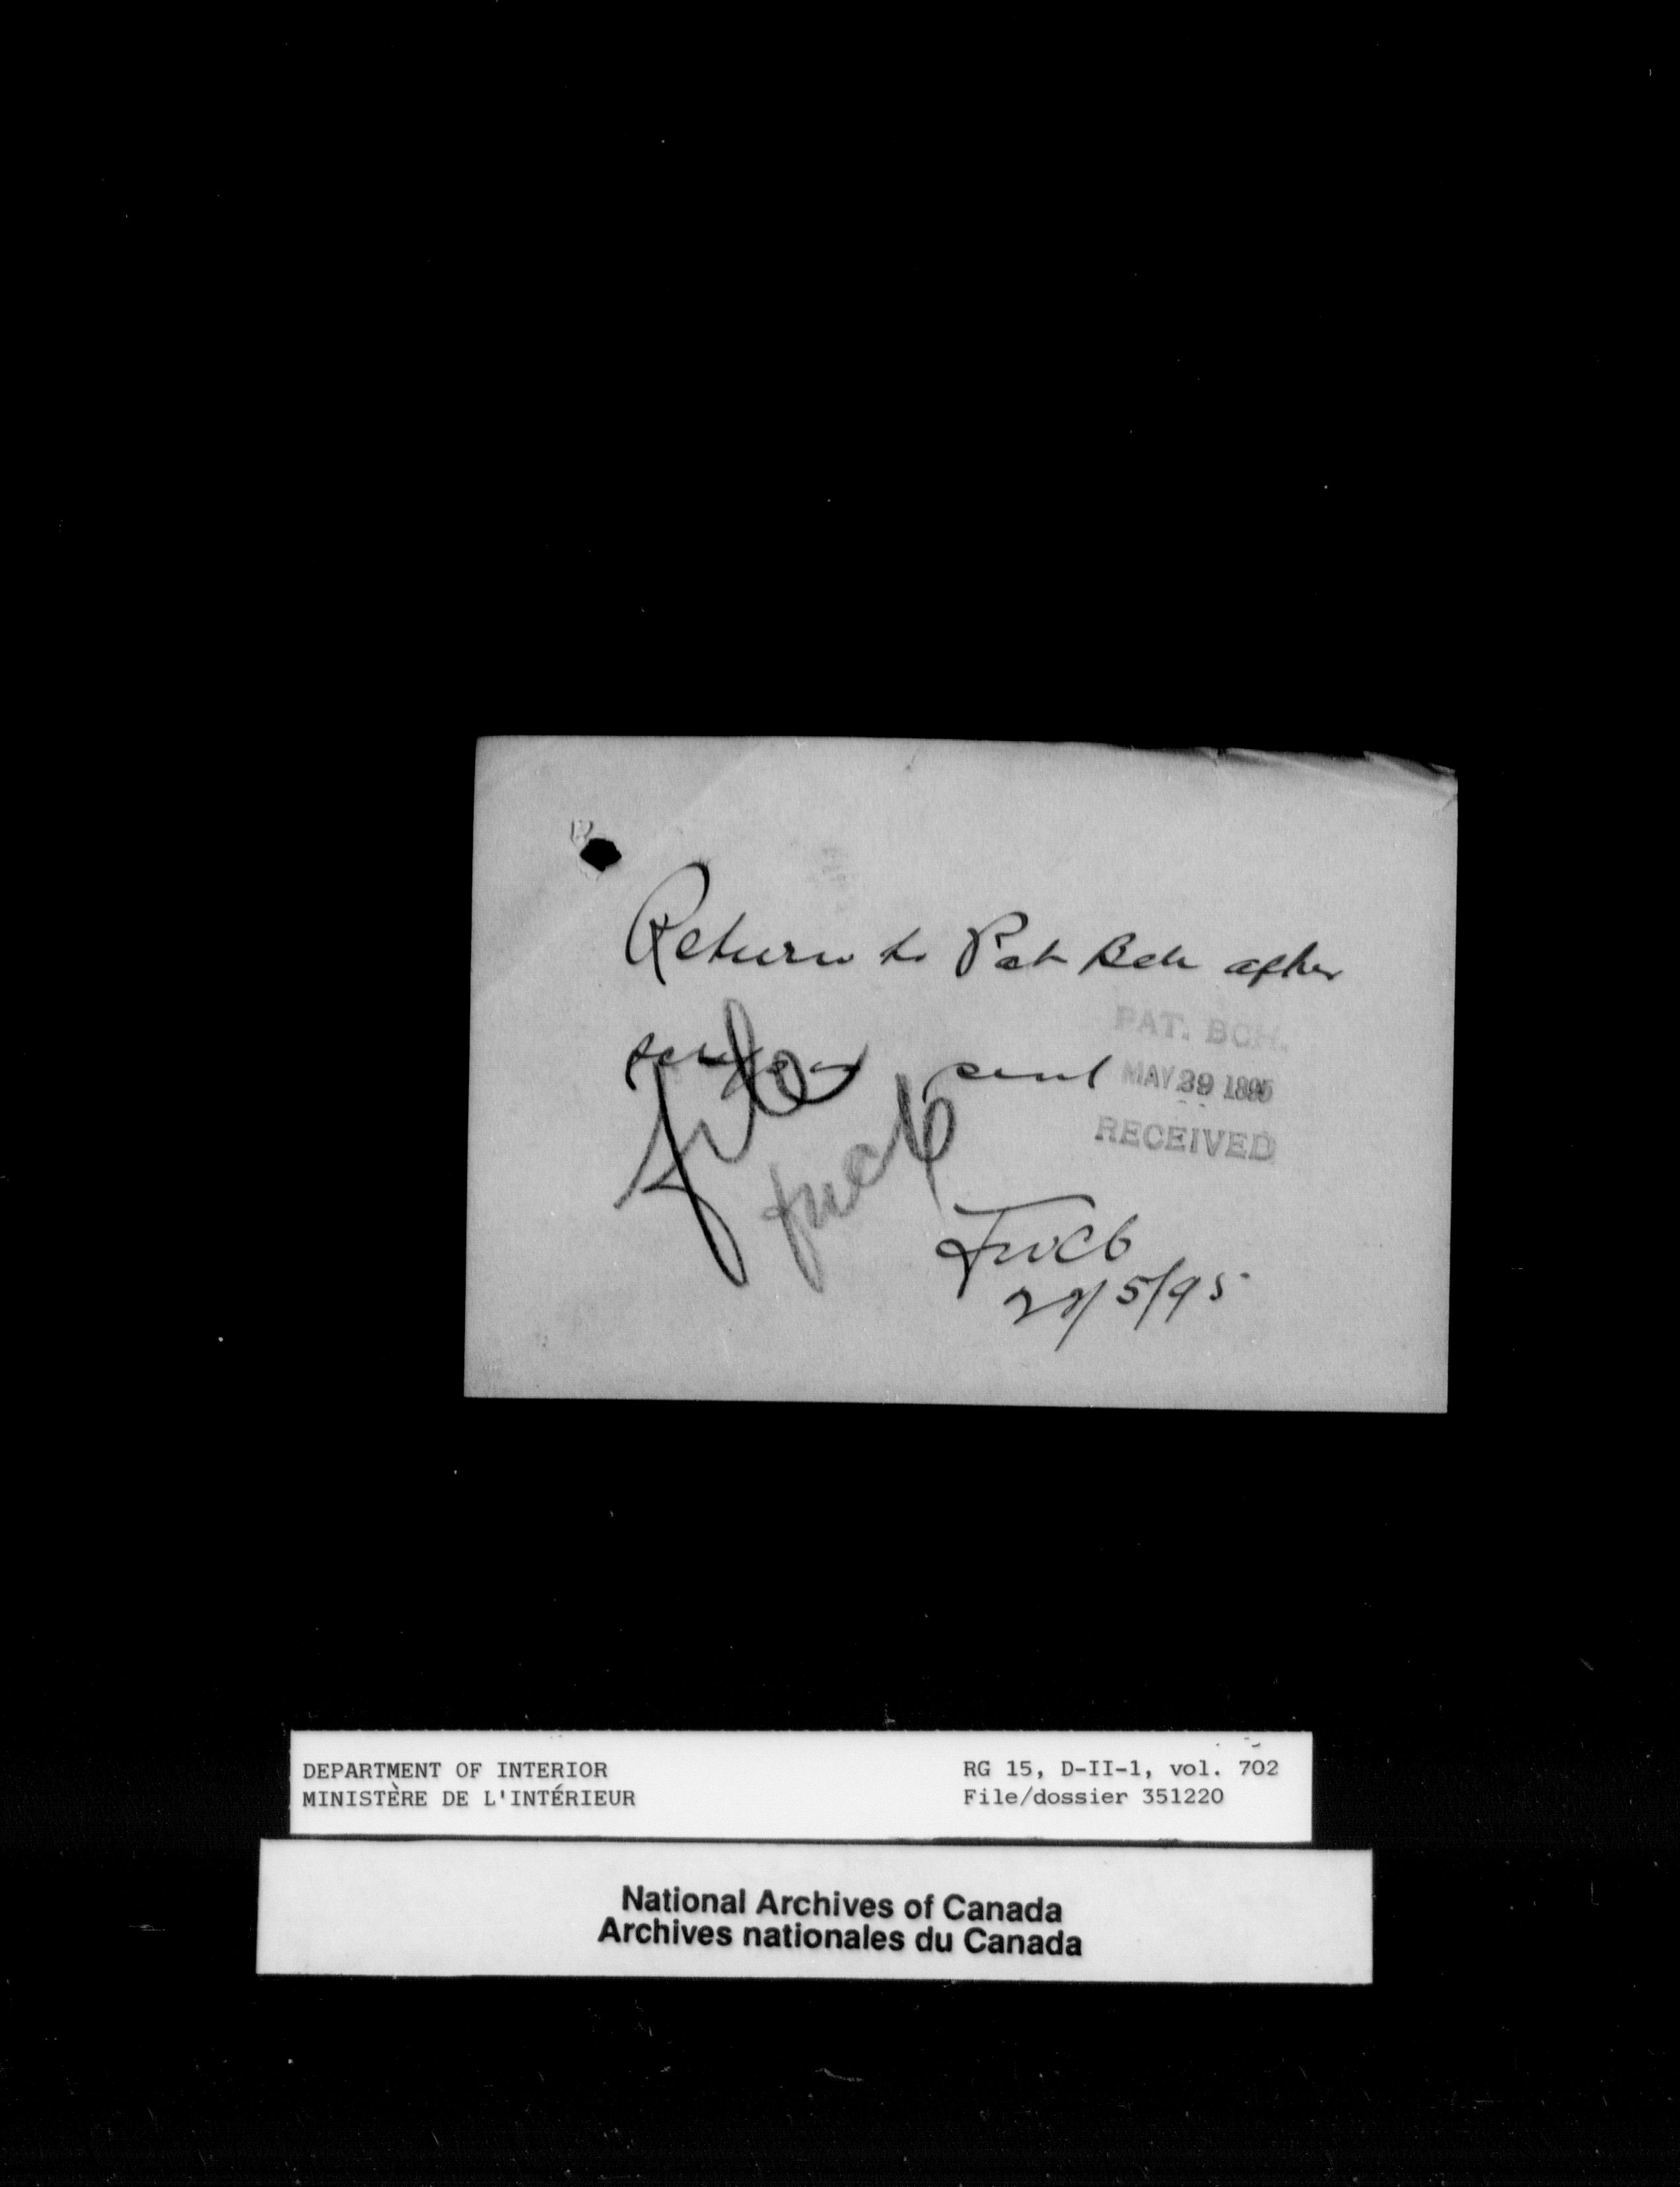 Return to Pat Bch after
scrip sent
PAT. BCH.
MAY 29 1895
RECEIVED
File
FWCB
FWCB
28/5/95
DEPARTMENT OF INTERIOR
MINISTÈRE DE L'INTÉRIEUR
RG 15, D-II-1, vol. 702
File/dossier 351220
National Archives of Canada
Archives nationales du Canada